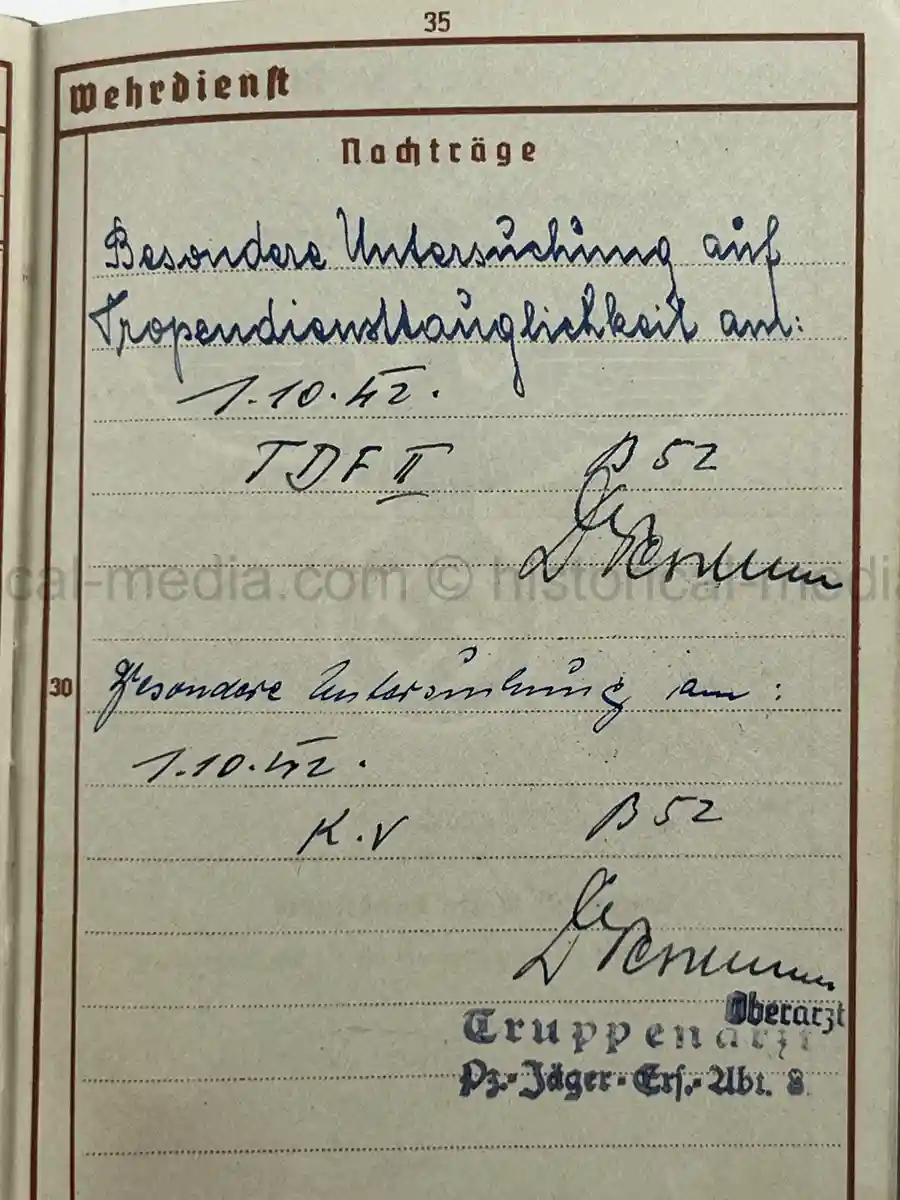 35
Wehrdienst
Nachträge
Besondere Untersuchung auf
Tropendiensttauglichkeit am:
1.10.42.
TDF II B 52
Dr.
cal-media.com © historical-media
30 Besondere Untersuchung am:
1.10.42.
K.V B 52
Dr.
Oberarzt
Truppenarzt
Pz.-Jäger-Ers.-Abt. 8.